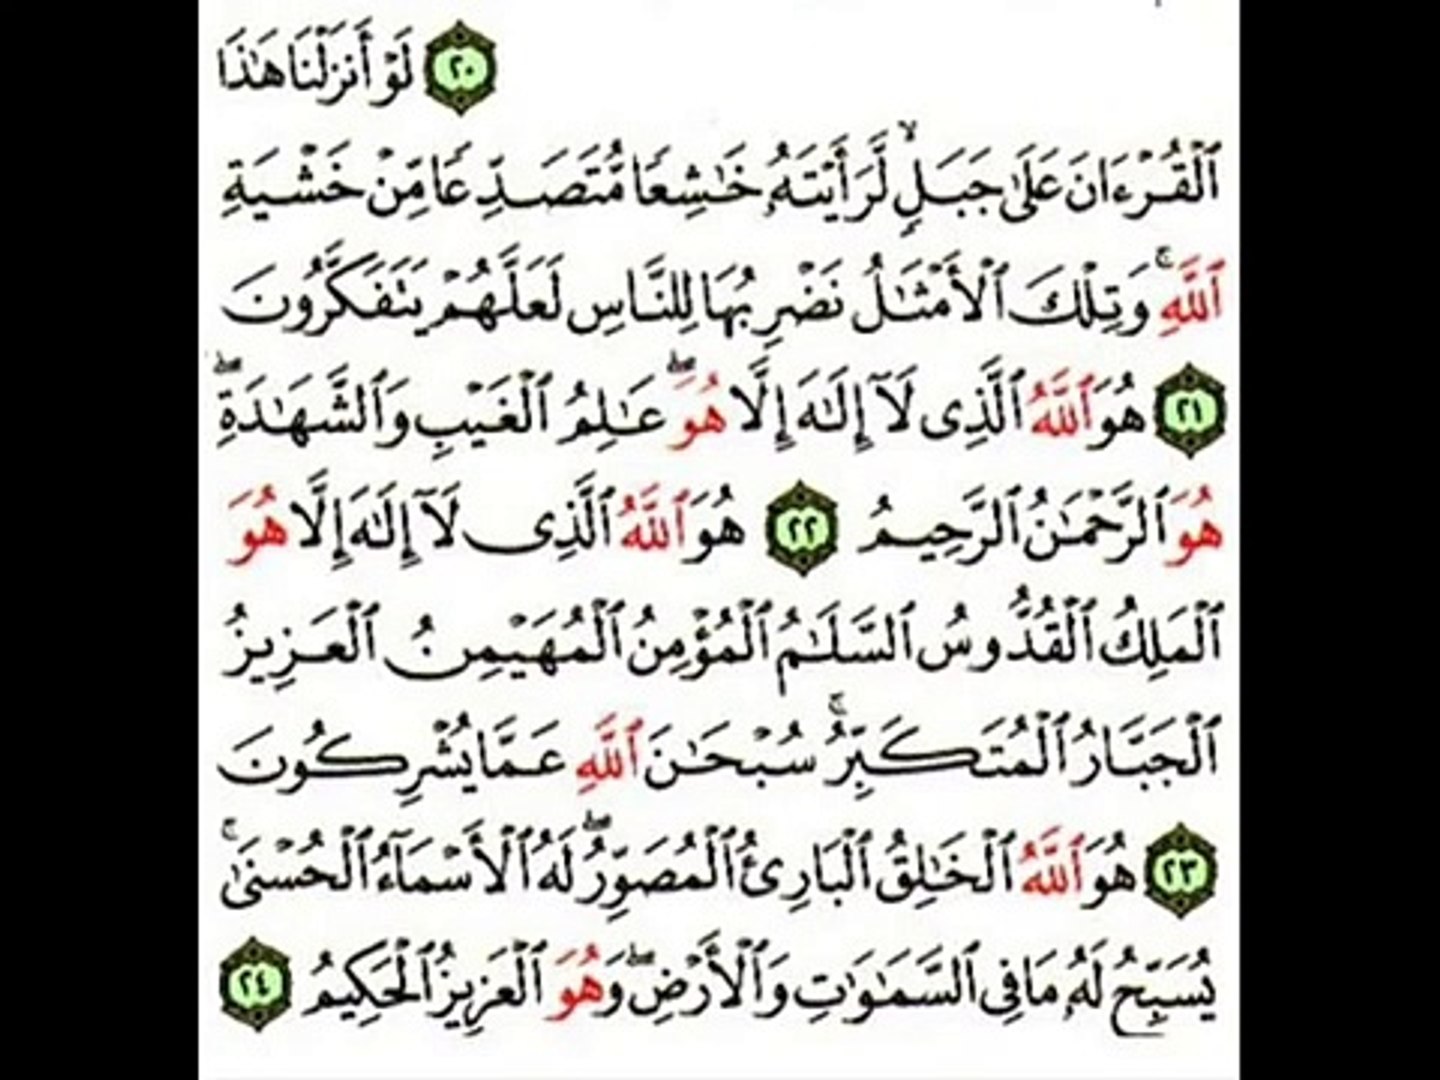 ٢٠ لَوْ أَنزَلْنَا هَٰذَا
ٱلْقُرْءَانَ عَلَىٰ جَبَلٍ لَّرَأَيْتَهُۥ خَٰشِعًا مُّتَصَدِّعًا مِّنْ خَشْيَةِ
ٱللَّهِ ۚ وَتِلْكَ ٱلْأَمْثَٰلُ نَضْرِبُهَا لِلنَّاسِ لَعَلَّهُمْ يَتَفَكَّرُونَ
٢١ هُوَ ٱللَّهُ ٱلَّذِى لَآ إِلَٰهَ إِلَّا هُوَ ۖ عَٰلِمُ ٱلْغَيْبِ وَٱلشَّهَٰدَةِ ۖ
هُوَ ٱلرَّحْمَٰنُ ٱلرَّحِيمُ ٢٢ هُوَ ٱللَّهُ ٱلَّذِى لَآ إِلَٰهَ إِلَّا هُوَ
ٱلْمَلِكُ ٱلْقُدُّوسُ ٱلسَّلَٰمُ ٱلْمُؤْمِنُ ٱلْمُهَيْمِنُ ٱلْعَزِيزُ
ٱلْجَبَّارُ ٱلْمُتَكَبِّرُ ۚ سُبْحَٰنَ ٱللَّهِ عَمَّا يُشْرِكُونَ
٢٣ هُوَ ٱللَّهُ ٱلْخَٰلِقُ ٱلْبَارِئُ ٱلْمُصَوِّرُ ۖ لَهُ ٱلْأَسْمَآءُ ٱلْحُسْنَىٰ ۚ
يُسَبِّحُ لَهُۥ مَا فِى ٱلسَّمَٰوَٰتِ وَٱلْأَرْضِ ۖ وَهُوَ ٱلْعَزِيزُ ٱلْحَكِيمُ ٢٤